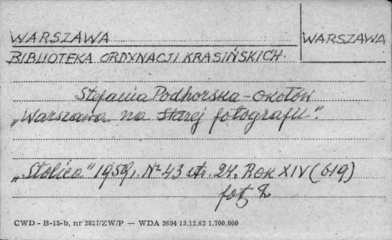 WARSZAWA
WARSZAWA
BIBLIOTEKA ORDYNACJI KRASIŃSKICH.
Stefania Podhorska-Okołów
„Warszawa na starej fotografii".
„Stolica" 1959, Nº 43 str. 24. Rok XIV (619)
fot.
CWD - B-15-b, nr 2827/ZW/P — WDA 2694 13.12.62 1.700.000